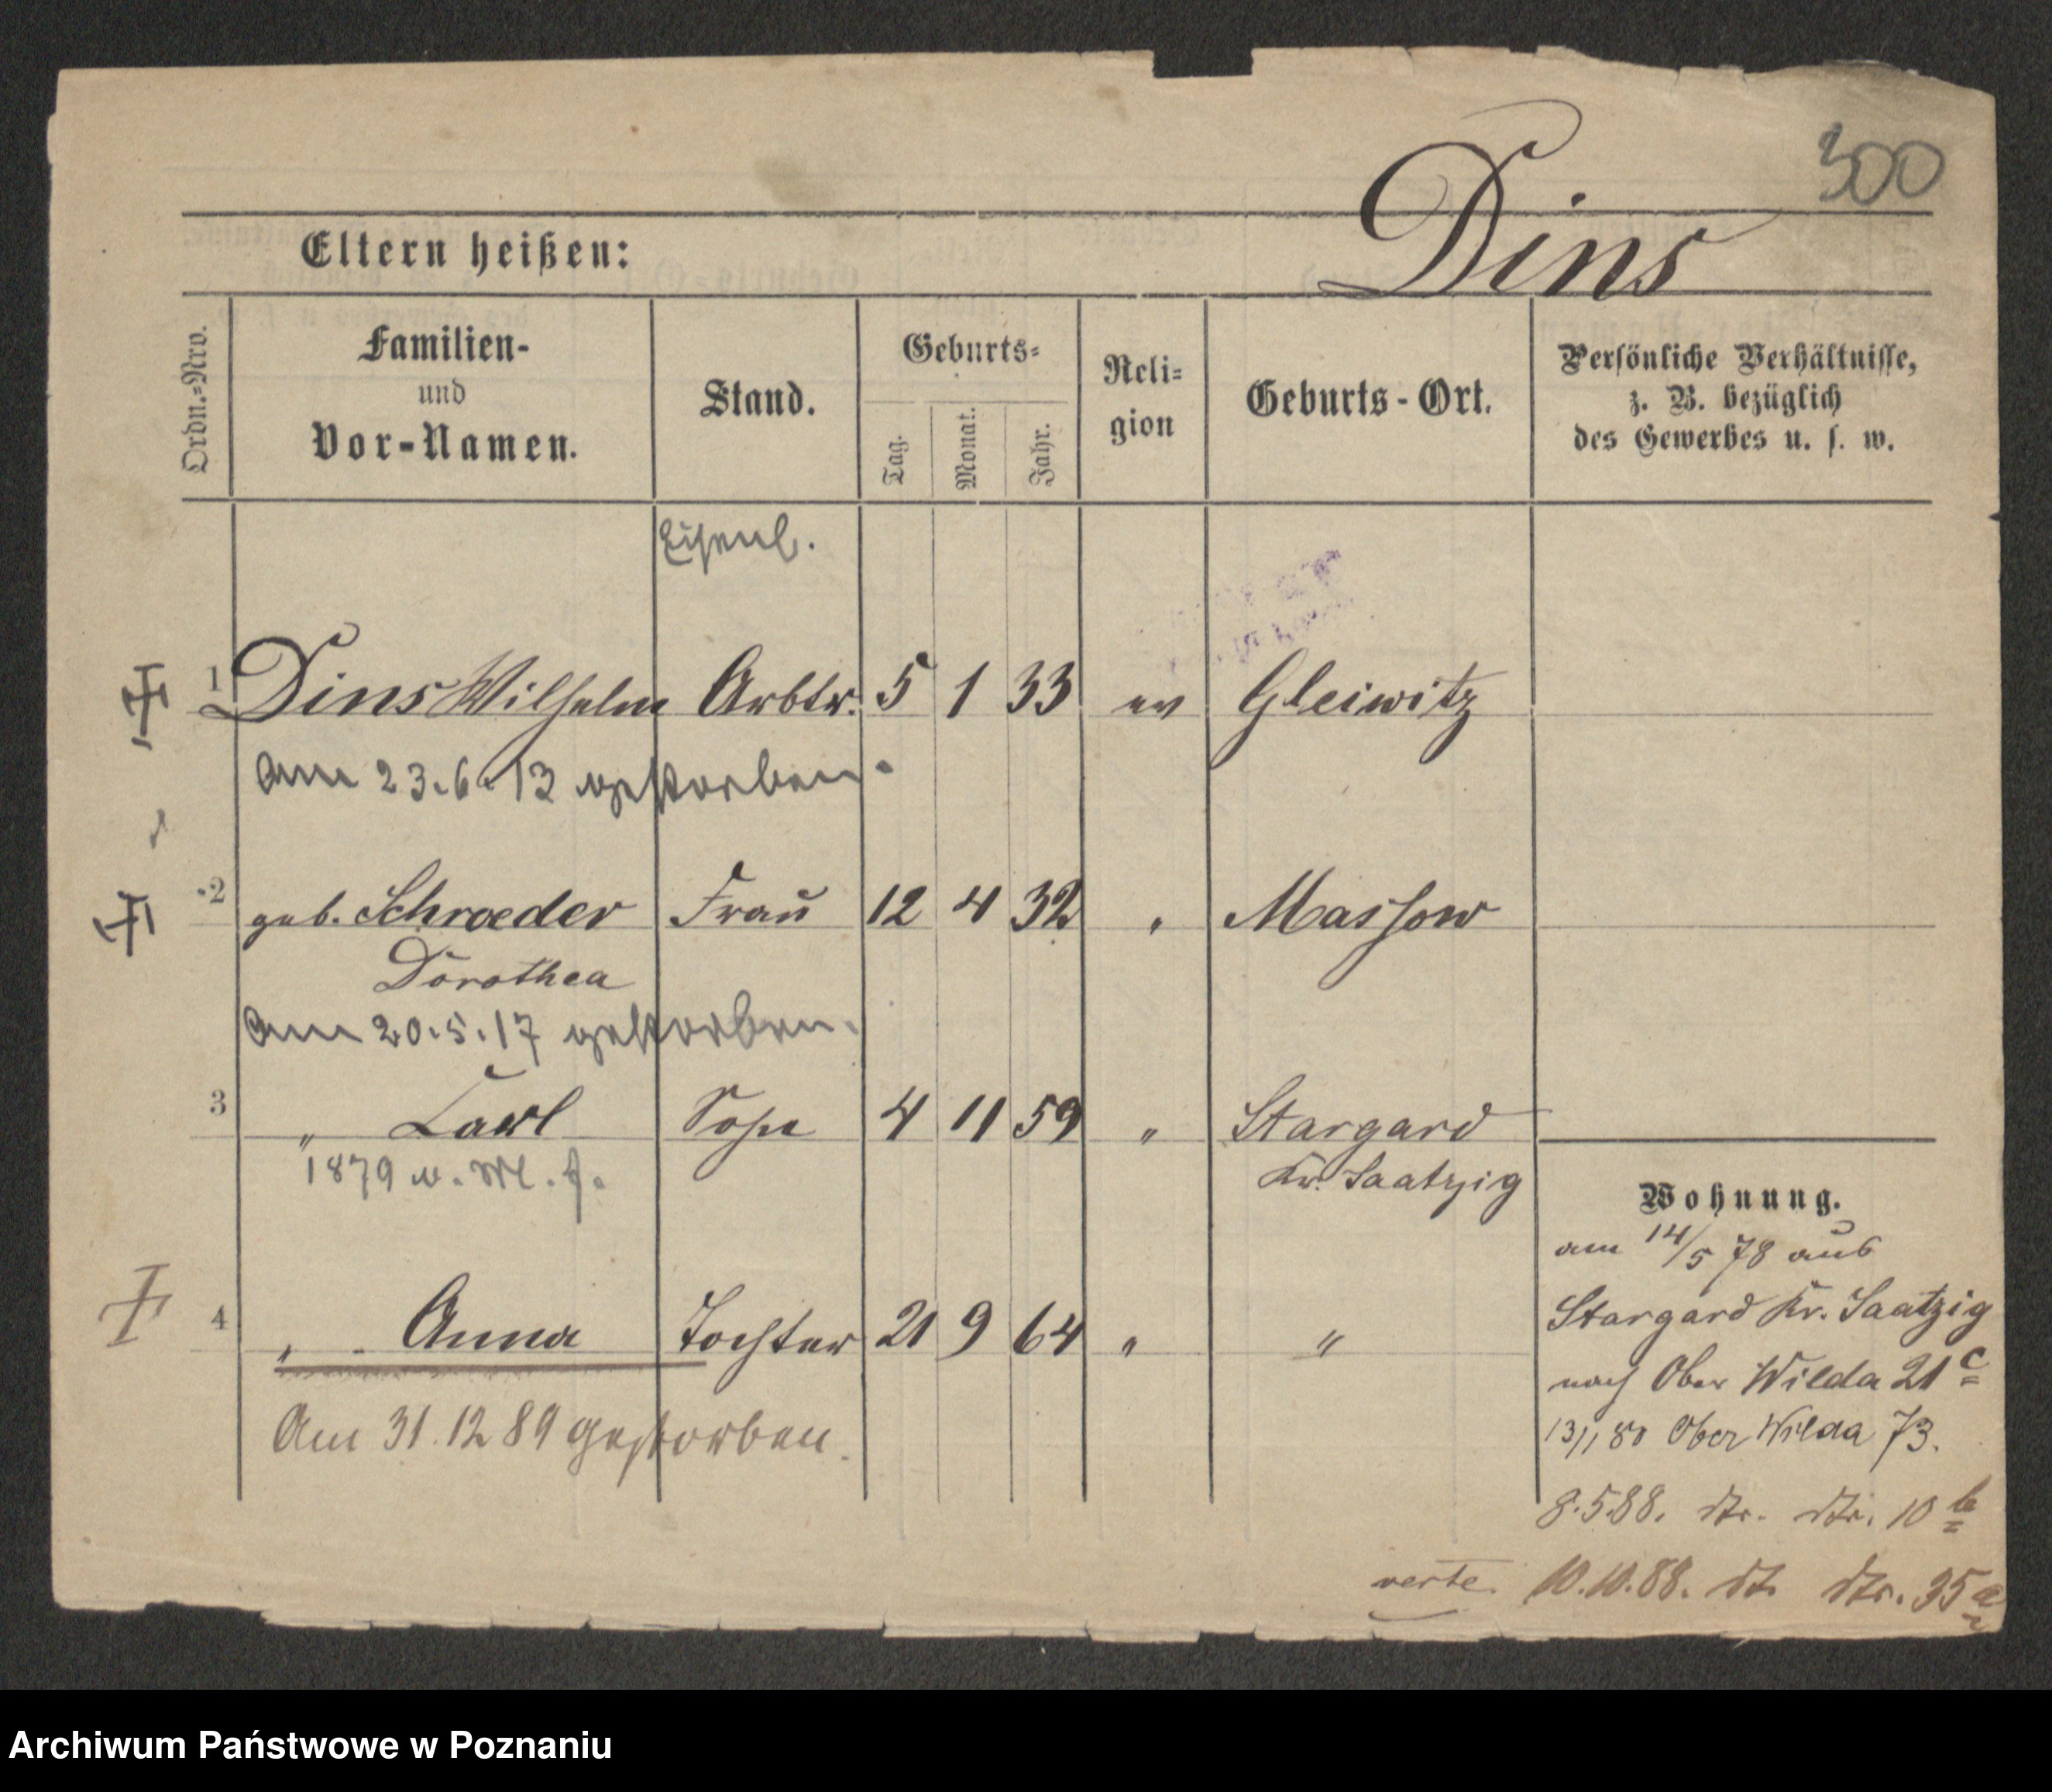 300
Dins
Eltern heißen:
Ordn.=Nro.
Familien-
und
Vor-Namen.
Stand.
Geburts=
Tag.
Monat.
Jahr.
Reli=
gion
Geburts-Ort.
Persönliche Verhältnisse,
z. B. bezüglich
des Gewerbes u. s. w.
Eisenb.
1 Dins Wilhelm Arbtr. 5 1 33 ev Gleiwitz
am 23.6.13 gestorben.
2 geb. Schroeder Frau 12 4 32 " Massow
Dorothea
am 20.5.17 gestorben.
3 " Carl Sohn 4 11 59 " Stargard
1879 Kr. Saatzig
Wohnung.
am 14/5 78 aus
Stargard Kr. Saatzig
4 " Anna Tochter 21 9 64 " "
nach Ober Wilda 21 c
Am 31.12 89 gestorben.
13/1 80 Ober Wilda 73.
8.5.88. dto. dto. 10 b
verte. 10.10.88. dto dto. 35 a
Archiwum Państwowe w Poznaniu